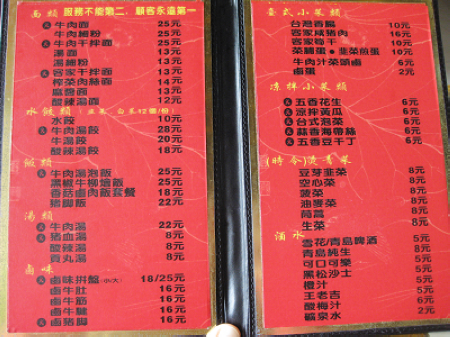 面類 服務不能第二．顧客永遠第一
牛肉面 25元
牛肉細粉 25元
牛肉干拌面 25元
湯面 13元
湯細粉 13元
客家干拌面 13元
榨菜肉絲面 13元
麻醬面 13元
酸辣湯面 13元
水餃類
水餃 10元
牛肉湯餃 28元
牛湯餃 20元
酸辣湯餃 18元
飯類
牛肉湯泡飯 25元
黑椒牛柳燴飯 25元
香菇鹵肉飯套餐 18元
豬腳飯 22元
湯類
牛肉湯 22元
豬血湯 8元
酸辣湯 8元
貢丸湯 8元
鹵味
鹵味拼盤(小/大) 18/25元
鹵牛肚 16元
鹵牛筋 16元
鹵牛腱 16元
鹵豬腳 16元
臺式小菜類
台灣香腸 10元
客家咸豬肉 16元
客家筍干 10元
菜脯蛋•韭菜煎蛋 10元
牛肉汁菜頭鹵 6元
鹵蛋 2元
涼拌小菜類
五香花生 6元
涼拌黃瓜 6元
台式泡菜 6元
蒜香海帶絲 6元
五香豆干丁 6元
(時令)燙青菜
豆芽韭菜 8元
空心菜 8元
菠菜 8元
油麥菜 8元
茼蒿 8元
生菜 8元
酒水
雪花/青島啤酒 5元
青島純生 8元
可口可樂 5元
黑松沙士 5元
橙汁 5元
王老吉 5元
酸梅汁 6元
礦泉水 2元